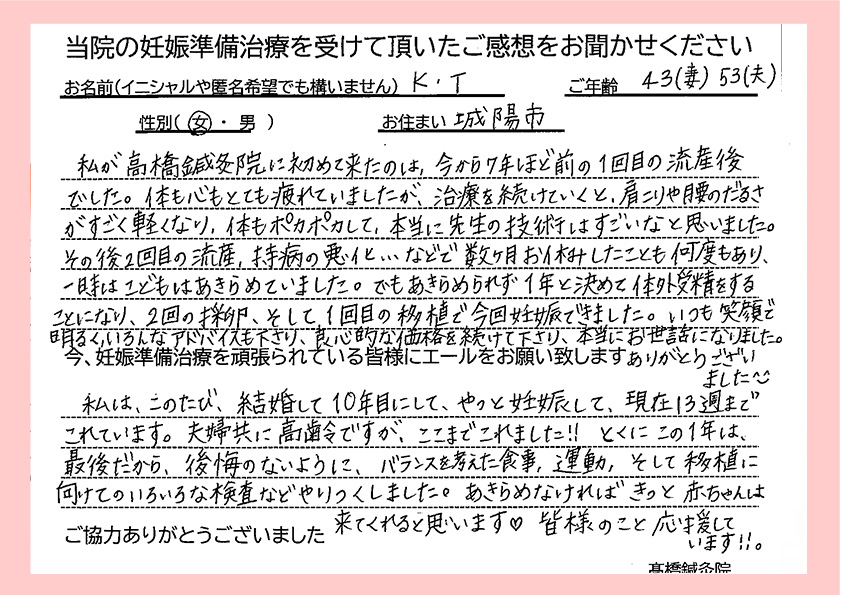 当院の妊娠準備治療を受けて頂いたご感想をお聞かせください
お名前(イニシャルや匿名希望でも構いません) K・T ご年齢 43(妻) 53(夫)
性別( 女 ・ 男 ) お住まい 城陽市
私が高橋鍼灸院に初めて来たのは、今から7年ほど前の1回目の流産後
でした。体も心もとても疲れていましたが、治療を続けていくと、肩こりや腰のだるさ
がすごく軽くなり、体もポカポカして、本当に先生の技術はすごいなと思いました。
その後2回目の流産、持病の悪化…などで数ヶ月お休みしたことも何度もあり、
一時はこどもはあきらめていました。でもあきらめられず1年と決めて体外受精をする
ことになり、2回の採卵、そして1回目の移植で今回妊娠できました。いつも笑顔で
明るく、いろんなアドバイスも下さり、良心的な価格を続けて下さり、本当にお世話になりました。
今、妊娠準備治療を頑張られている皆様にエールをお願い致します ありがとうござい
ました
私は、このたび、結婚して10年目にして、やっと妊娠して、現在13週まで
これています。夫婦共に高齢ですが、ここまでこれました!! とくにこの1年は、
最後だから、後悔のないように、バランスを考えた食事、運動、そして移植に
向けてのいろいろな検査などやりつくしました。あきらめなければきっと赤ちゃんは
ご協力ありがとうございました 来てくれると思います♡ 皆様のこと応援して
います!!。
髙橋鍼灸院